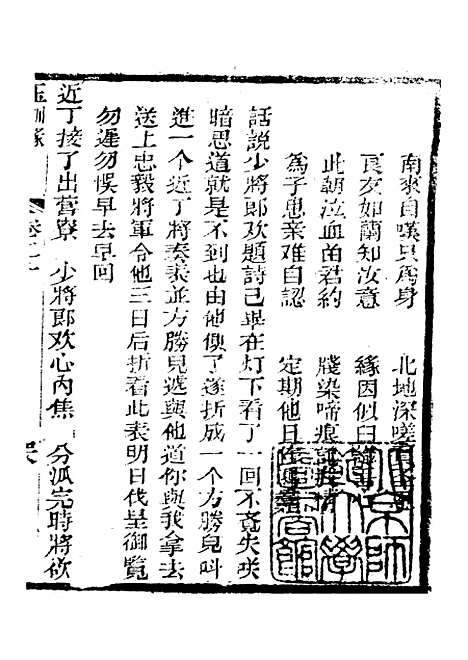 南來自嘆只爲身　北地深嗟
良友如蘭知汝意　緣因似臼
此朝泣血苗君約　牋染啼痕
為子思亲难自認　定期他日
話說少將郎欢題詩已畢在灯下看了一回不竟失咲
暗思道就是不到也由他便了遂折成一个方勝兒叫
進一个近丁將奏表並方勝兒遞與他道你與我拿去
送上忠毅將軍令他三日后折看此表明日伐呈御覽
勿遲勿悮早去早回
近丁接了出营寮　少將郎欢心內焦　分派完時將欲
玉釧緣
卷之